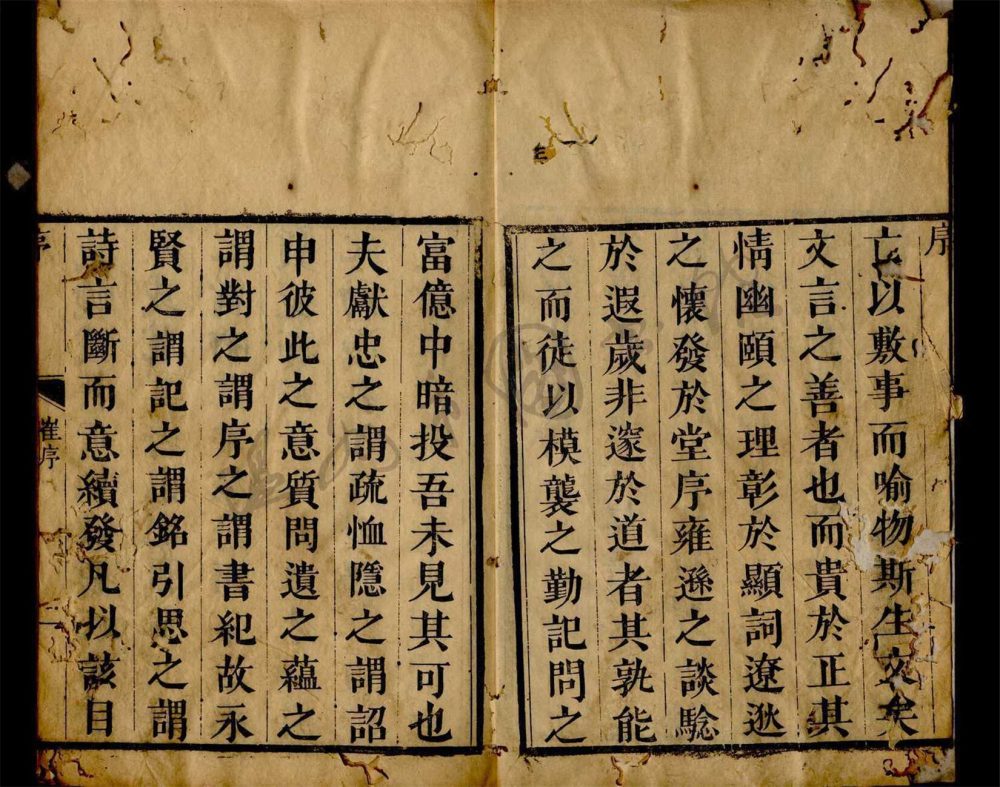 序
亡以敷事而喻物斯生文矣
文言之善者也而貴於正其
情幽頤之理彰於顯詞遼逖
之懷發於堂序雍遜之談騐
於遐歲非邃於道者其孰能
之而徒以模襲之勤記問之
富億中暗投吾未見其可也
夫獻忠之謂疏恤隱之謂詔
申彼此之意質問遺之蘊之
謂對之謂序之謂書紀故永
賢之謂記之謂銘引思之謂
詩言斷而意續發凡以該目
崔序